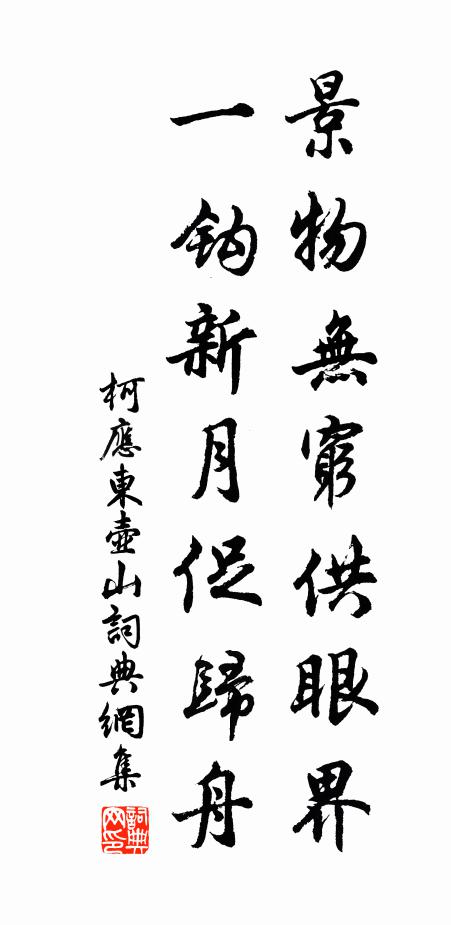 景物無窮供眼界
一鈎新月促歸舟
柯應東壺山詞典網集
詞典网印